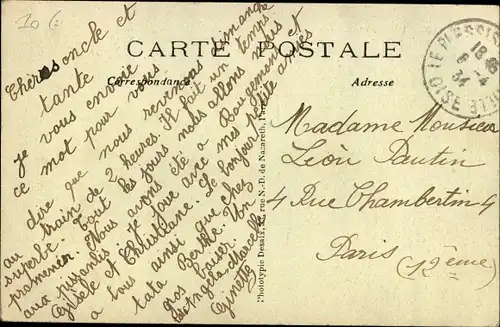 10 €
CARTE POSTALE
Correspondance
Adresse
LE PLESSIS
18
6-4
34
OISE
Chers oncle et
tante
je vous envoie ce
mot pour vous
dire que nous revenons dimanche
au train de 2 heures. Il fait un temps
superbe. Tout les jours nous allons nous
promener. Nous avons été a et
aux jissenlis. Je joue avec mes petite amies
Gisèle et Christiane. Le bonjour
a tous ainsi que chez
tata Berthe. Un
Gros baiser
Marcelle
Ginette
Phototypie Desaix, rue N.-D. de Nazareth, Paris
Madame Monsieur
Léon Pautin
4 Rue Chambertin 4
Paris (12ème)